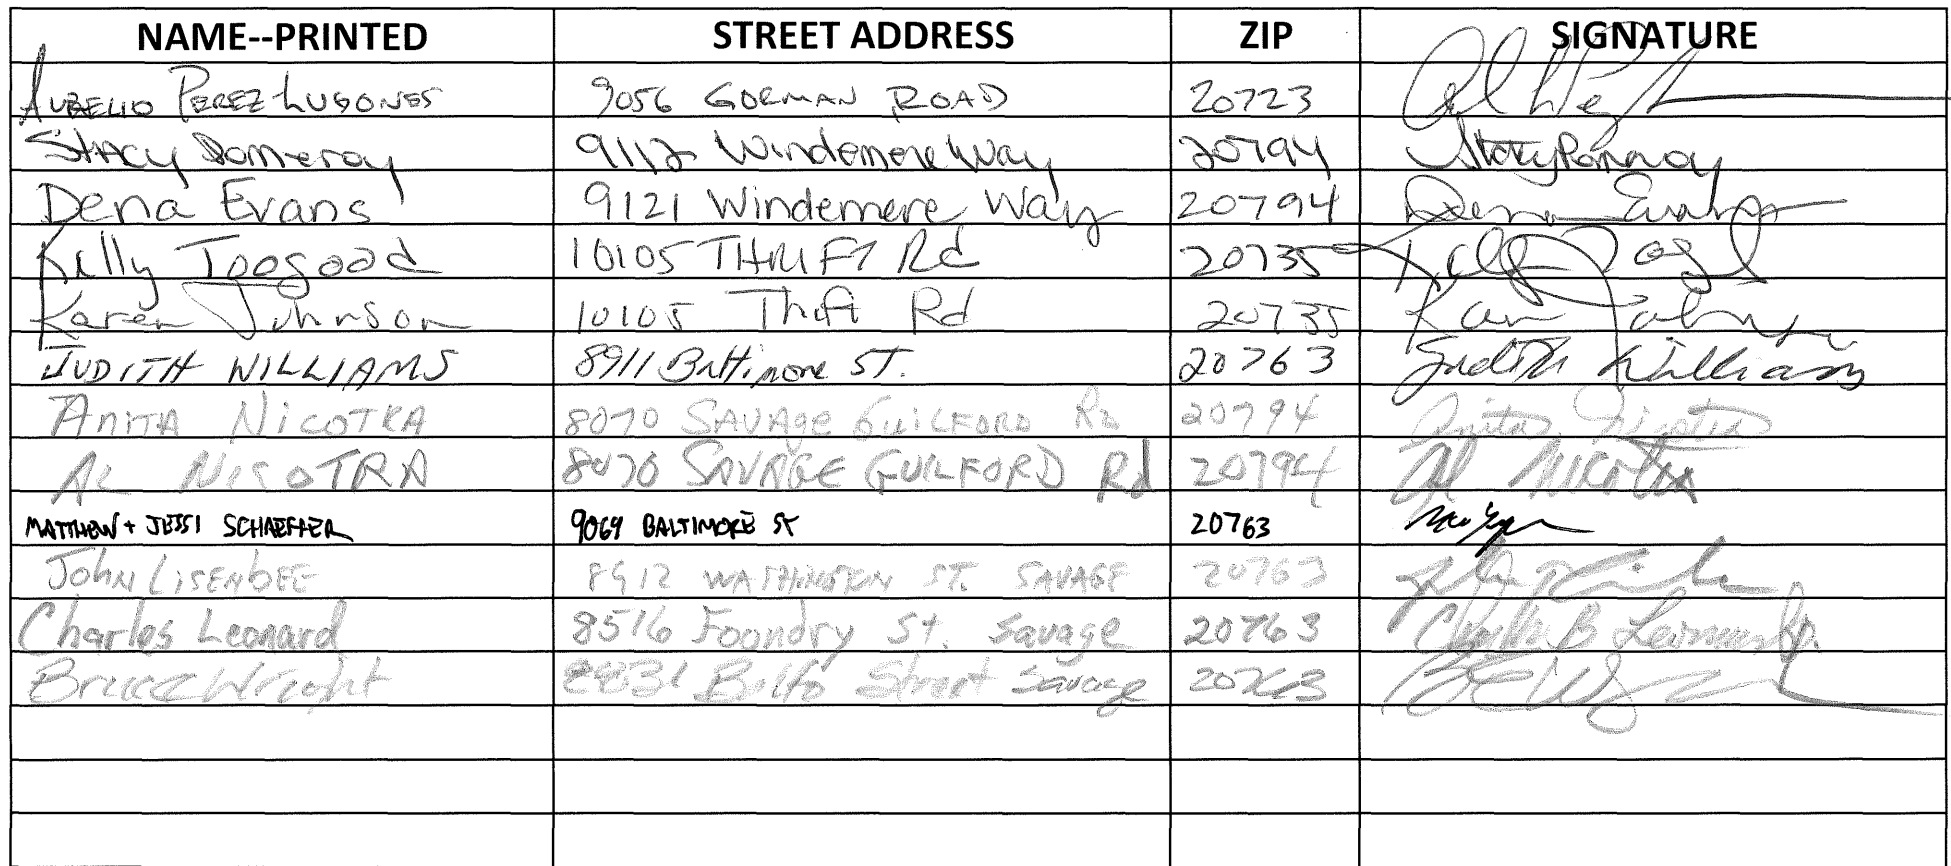 NAME--PRINTED STREET ADDRESS ZIP SIGNATURE
AURELIO PEREZ-LUGONES 9056 GORMAN ROAD 20723
Stacy Pomeroy 9112 Windemere Way 20794 Stacy Pomeroy
Dena Evans 9121 Windemere Way 20794 Dena Evans
Kelly Toogood 10105 THRIFT Rd 20735
Karen Johnson 10105 Thrift Rd 20735 Karen Johnson
JUDITH WILLIAMS 8911 Baltimore ST. 20763 Judith Williams
ANITA NICOTRA 8070 SAVAGE GUILFORD RD 20794 Anita Nicotra
AL NICOTRA 8070 SAVAGE GUILFORD Rd 20794 Al Nicotra
MATTHEW + JESSI SCHAEFFER 9069 BALTIMORE ST 20763
JOHN LISENBEE 8912 WASHINGTON ST. SAVAGE 20763
Charles Leonard 8516 Foundry St. Savage 20763
Bruce Wright Balto Street Savage 20763